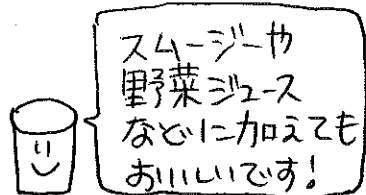 スムージーや
野菜ジュース
などに加えても
おいしいです!